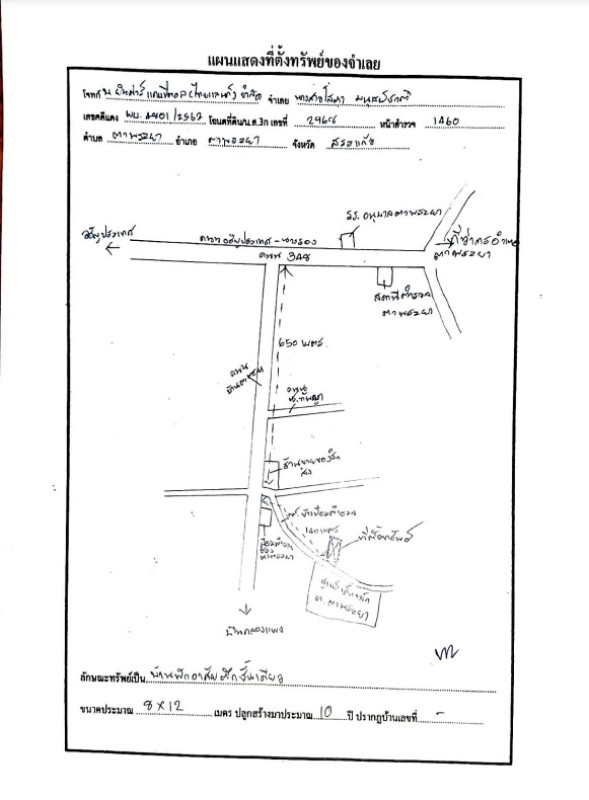 แผนแสดงที่ตั้งทรัพย์ของจำเลย
โจทก์ จำเลย นางสาวโสภา
เลขคดีแดง ผบ. 1401/2562 โฉนดที่ดิน/น.ส.3ก เลขที่ 2968 หน้าสำรวจ 1460
ตำบล ตาพระยา อำเภอ ตาพระยา จังหวัด สระแก้ว
รร. อนุบาลตาพระยา
อรัญประเทศ
ถนนอรัญประเทศ - นางรอง
ถนน 348
ที่ว่าการอำเภอ
ตาพระยา
สถานีตำรวจ
ตาพระยา
650 เมตร
ถนน
ถนน
ร้านขายของปลีก
ส่ง
140 เมตร
ที่ตั้งทรัพย์
ศูนย์เด็กเล็ก
ต. ตาพระยา
บ้านคลองแผง
ลักษณะทรัพย์เป็น บ้านพักอาศัยตึกชั้นเดียว
ขนาดประมาณ 8 X 12 เมตร ปลูกสร้างมาประมาณ 10 ปี ปรากฏบ้านเลขที่ -